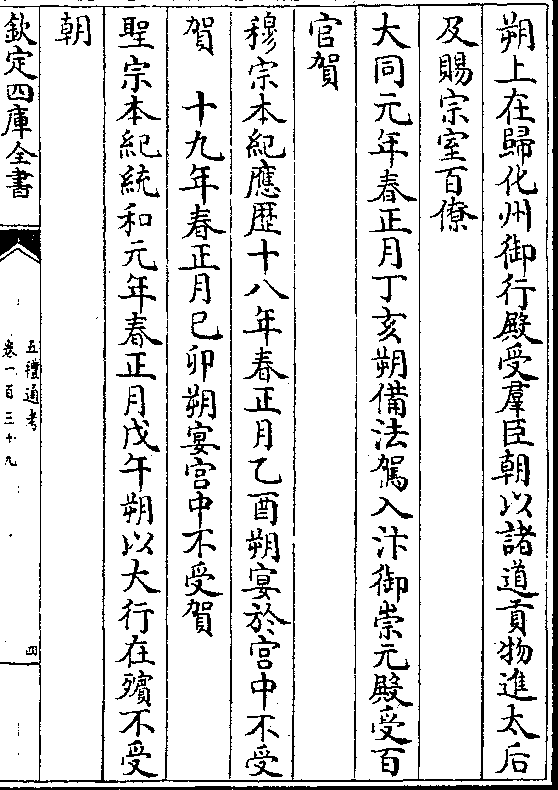 朔上在歸化州御行殿受羣臣朝以諸道貢物進太后
及賜宗室百僚
大同元年春正月丁亥朔備法駕入汴御崇元殿受百
官賀
穆宗本紀應歴十八年春正月乙酉朔宴於宫中不受
賀　十九年春正月巳卯朔宴宫中不受賀
聖宗本紀統和元年春正月戊午朔以大行在殯不受
朝
欽定四庫全書
五禮通考
卷一百三十九
四